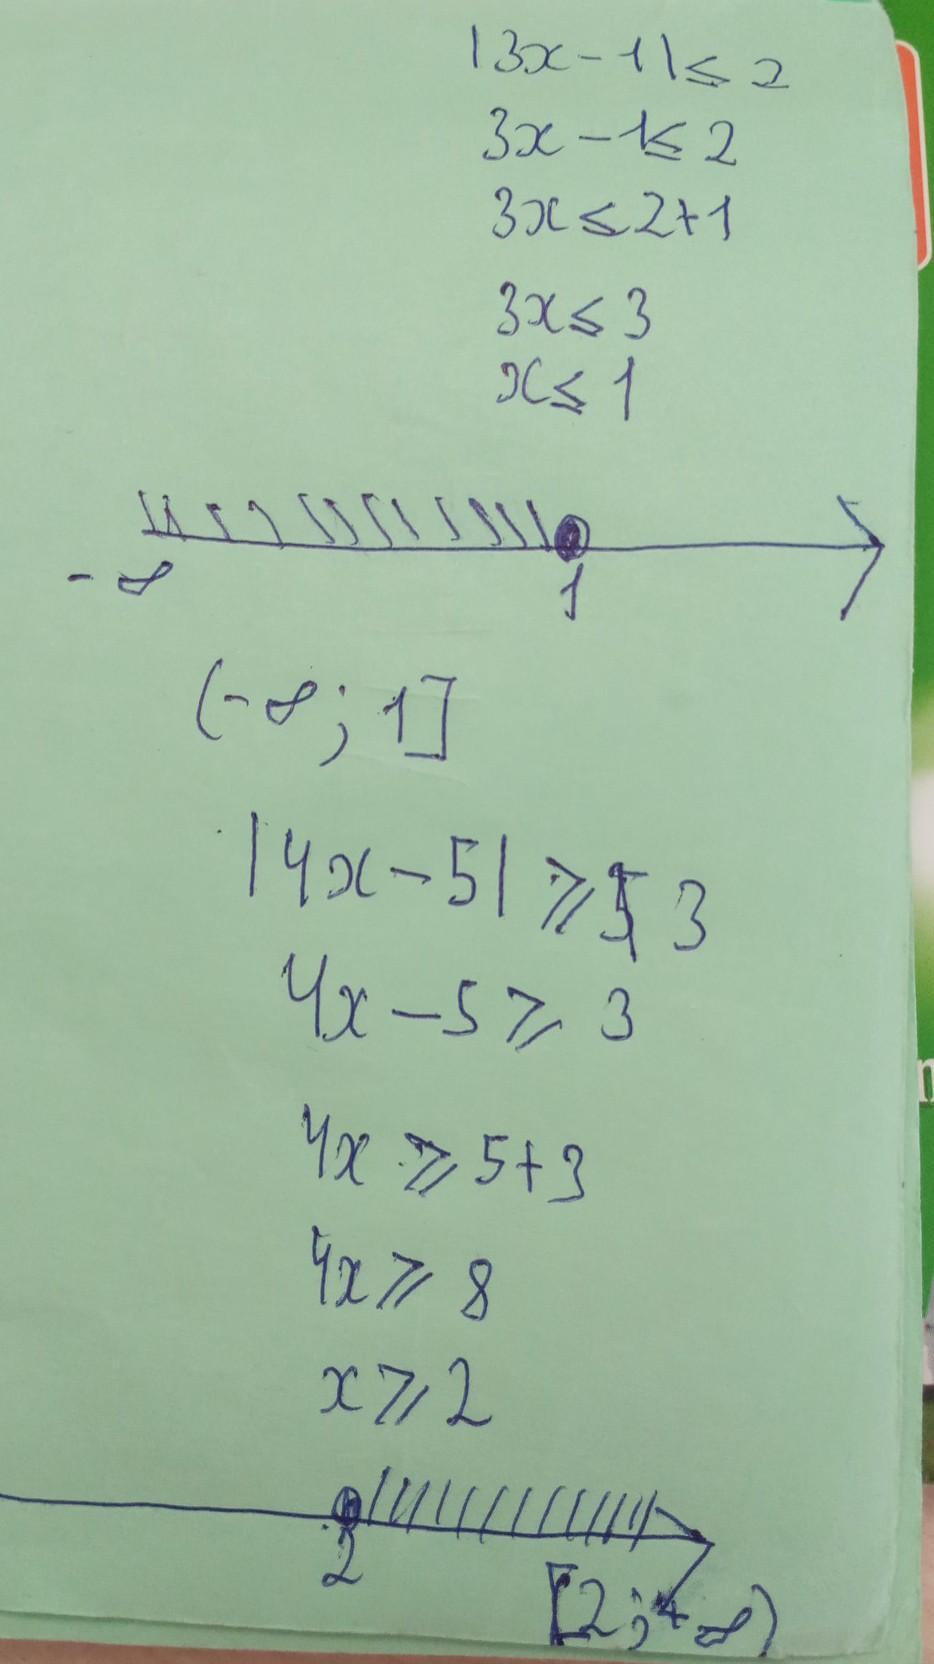 |3x-1|≤2
3x-1≤2
3x≤2+1
3x≤3
x≤1
-∞
1
(-∞; 1]
|4x-5|≥ 3
4x-5≥3
4x≥5+3
4x≥8
x≥2
2
[2;+∞)